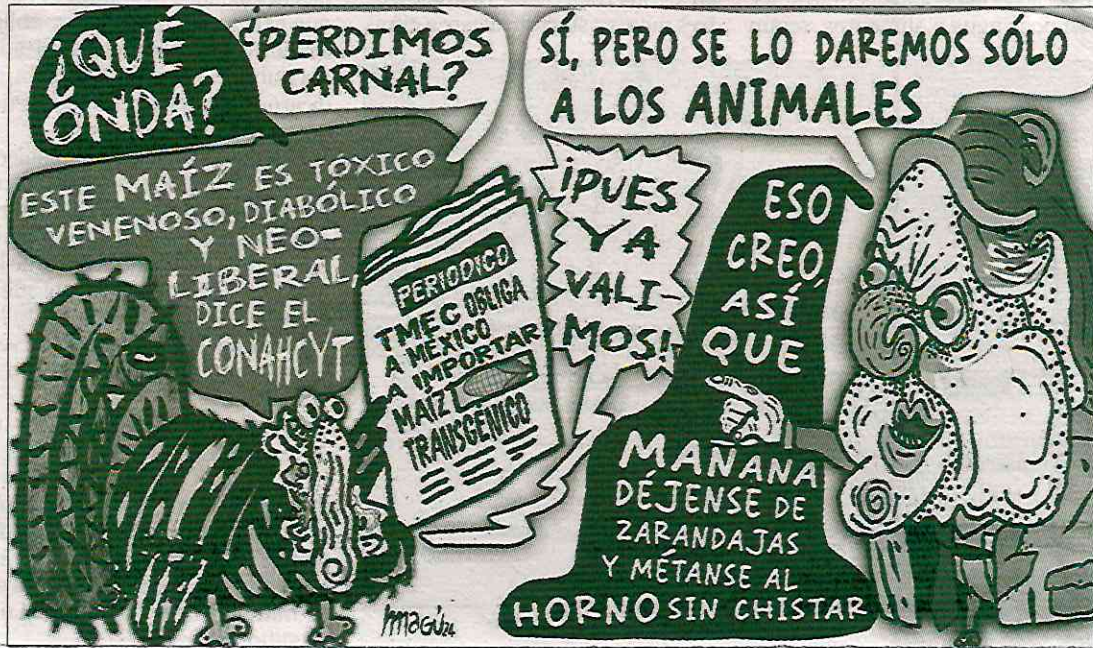 ¿QUÉ
ONDA?
¿PERDIMOS
CARNAL?
SÍ, PERO SE LO DAREMOS SÓLO
A LOS ANIMALES
ESTE MAÍZ ES TOXICO
VENENOSO, DIABÓLICO
Y NEO-
LIBERAL,
DICE EL
CONAHCYT
PERIODICO
TMEC OBLIGA
A MÉXICO
A IMPORTAR
MAÍZ
TRANSGÉNICO
¡PUES
YA
VALI-
MOS!
ESO
CREO,
ASÍ
QUE
MAÑANA
DÉJENSE DE
ZARANDAJAS
Y MÉTANSE AL
HORNO SIN CHISTAR
MAGÚ 24